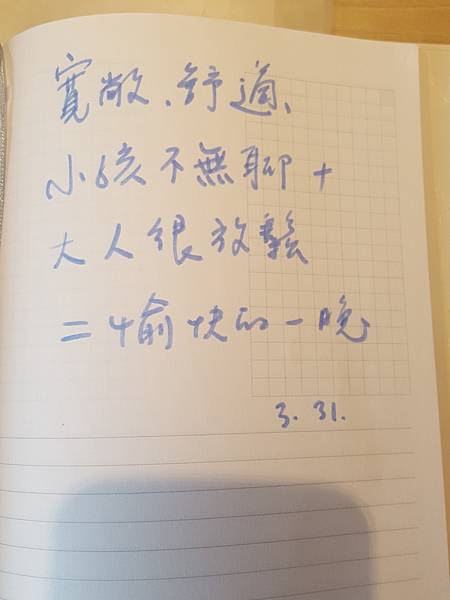 寬敞、舒適、
小孩不無聊+
大人很放鬆
=愉快的一晚
3.31.